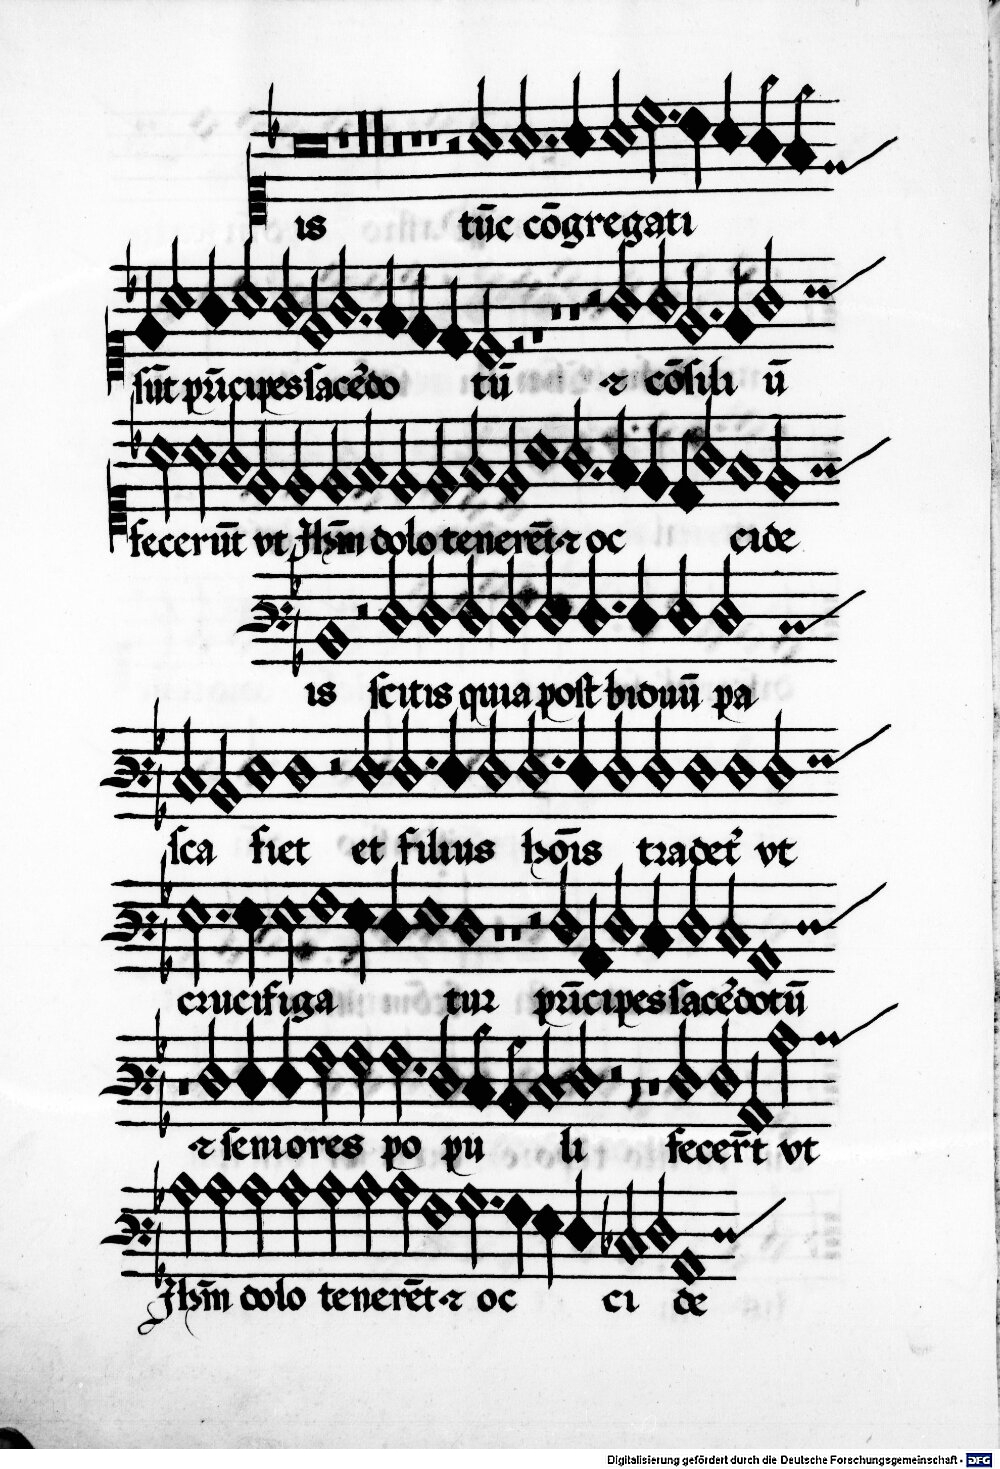 is tūc cōgregati
sūt prīcipes sacẽdo tū ⁊ cōsili ū
fecerūt vt Jhm̄ dolo tenerēt ⁊ oc cide
is scitis quia post biduū pa
sca fiet et filius hōis tradet᷑ vt
crucifiga tur prīcipes sacẽdotū
⁊ seniores po pu li fecer̄t vt
Jhm̄ dolo tenerēt ⁊ oc ci de
Digitalisierung gefördert durch die Deutsche Forschungsgemeinschaft - DFG